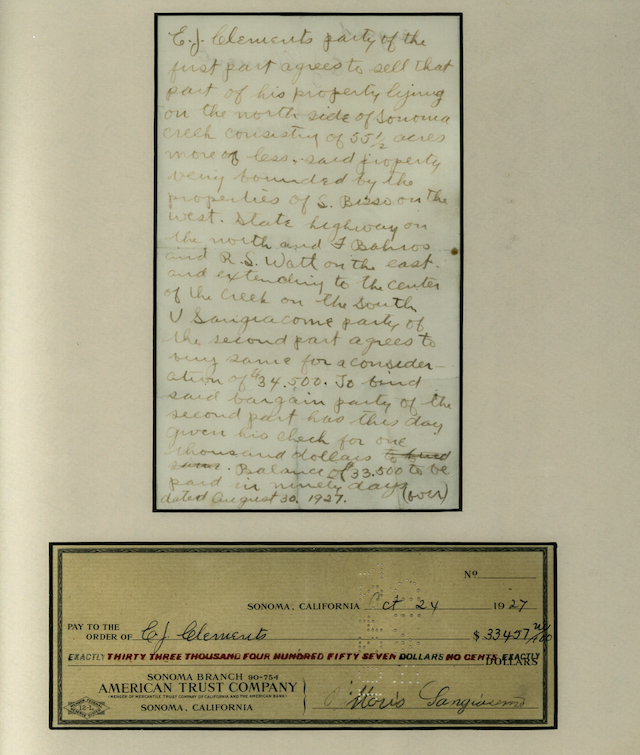 E.J. Clements party of the
first part agrees to sell that
part of his property lying
on the north side of Sonoma
Creek consisting of 55 1/2 acres
more or less. said property
being bounded by the
properties of S. Bisso on the
west. State highway on
the north and
and R.S. Watt on the east.
and extending to the center
of the creek on the South
V Sangiacomo party of
the second part agrees to
buy same for a consider-
ation of $34.500. To bind
said bargain party of the
second part has this day
given his check for one
thousand dollars to bind
same. Balance of 33.500 to be
paid in ninety days
dated August 30. 1927. (over)
No
SONOMA, CALIFORNIA Oct 24 1927
PAY TO THE
ORDER OF E.J. Clements $33457 no/100
EXACTLY THIRTY THREE THOUSAND FOUR HUNDRED FIFTY SEVEN DOLLARS NO CENTS EXACTLY
DOLLARS
SONOMA BRANCH 90-754
AMERICAN TRUST COMPANY
(MERGER OF MERCANTILE TRUST COMPANY OF CALIFORNIA AND THE AMERICAN BANK)
SONOMA, CALIFORNIA
Sangiacomo